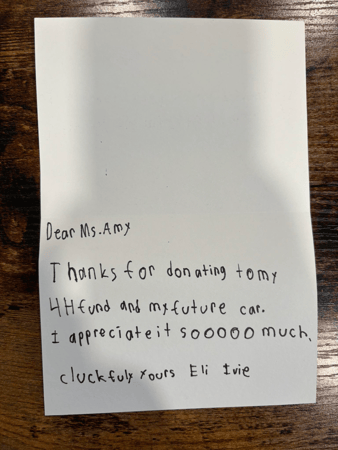 Dear Ms. Amy
Thanks for donating to my
4H fund and my future car.
I appreciate it sooooo much.
cluckfuly yours Eli Ivie